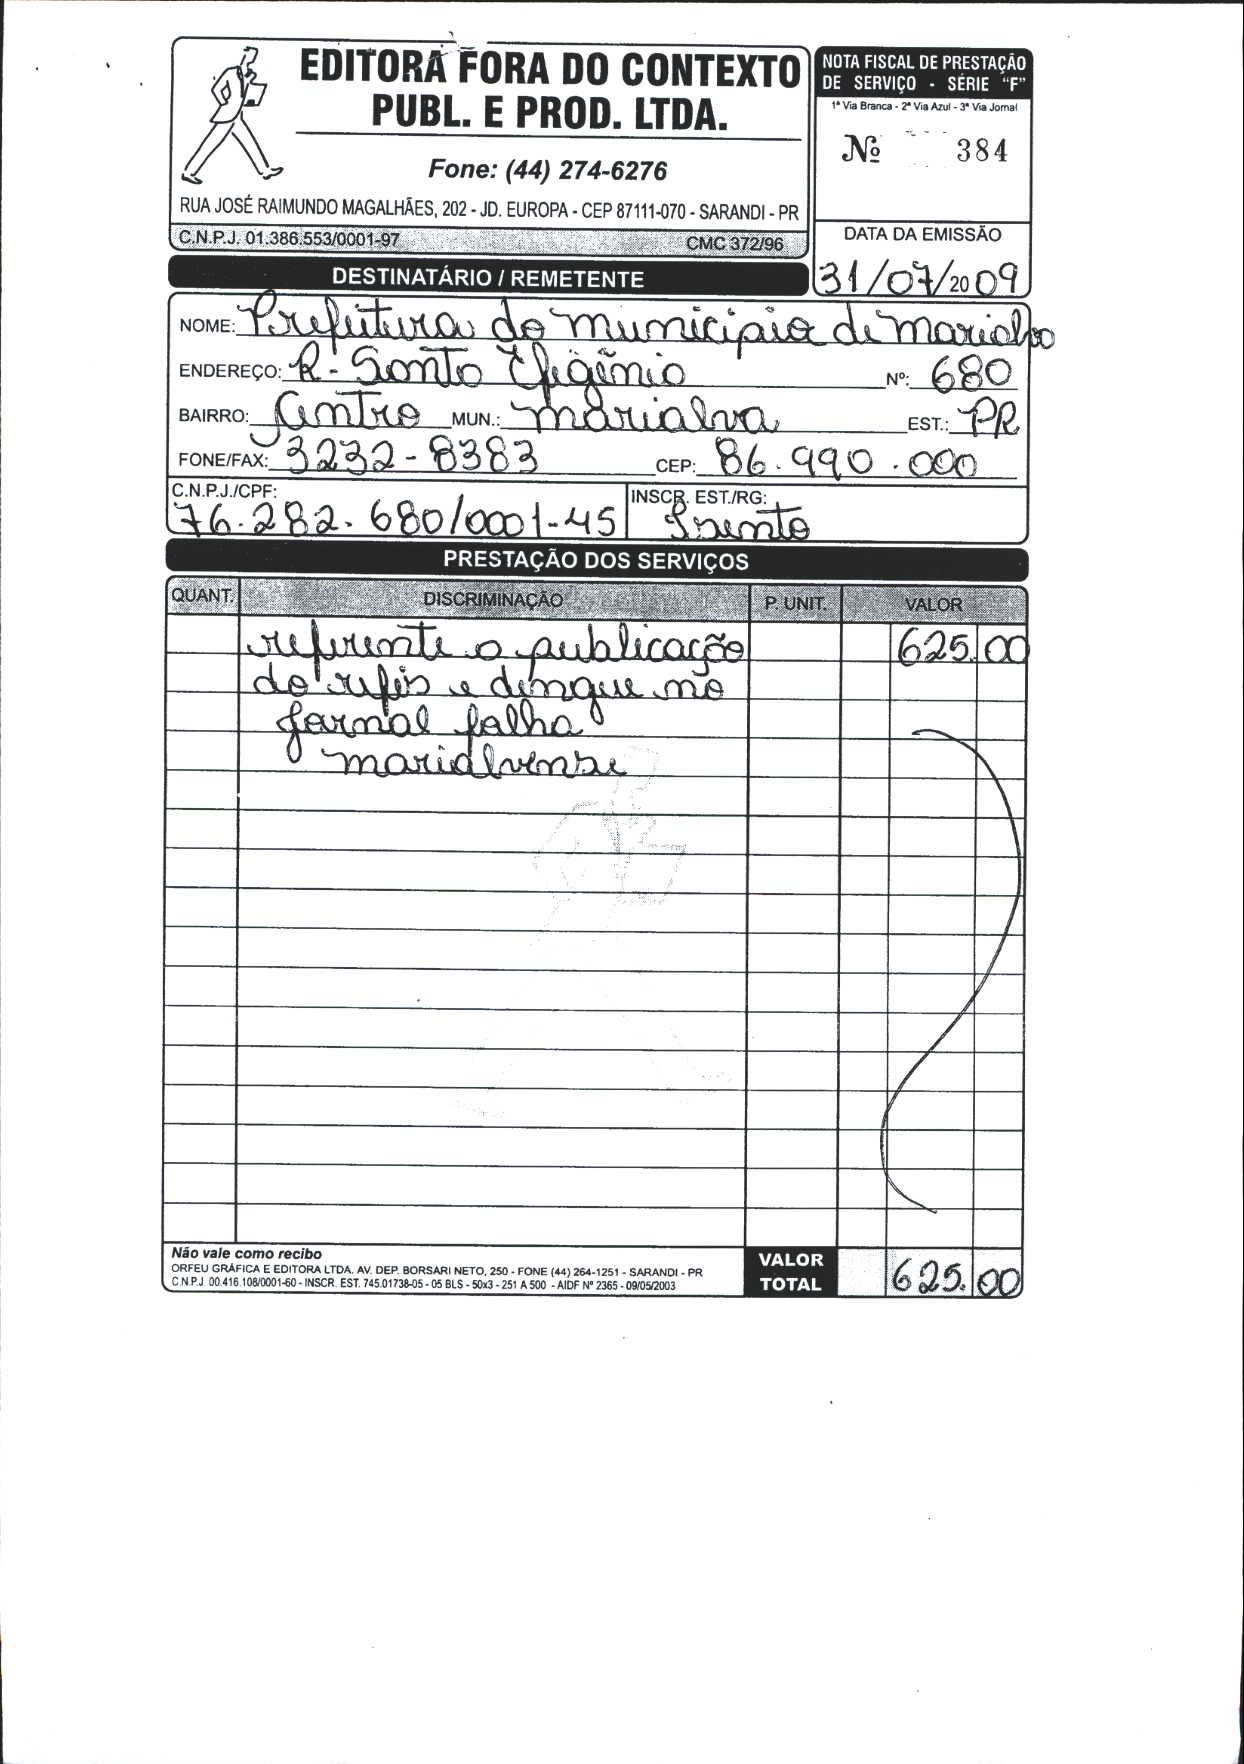 EDITORA FORA DO CONTEXTO
PUBL. E PROD. LTDA.
Fone: (44) 274-6276
RUA JOSÉ RAIMUNDO MAGALHÃES, 202 - JD. EUROPA - CEP 87111-070 - SARANDI - PR
C.N.P.J. 01.386.553/0001-97 CMC 372/96
NOTA FISCAL DE PRESTAÇÃO
DE SERVIÇO - SÉRIE “F”
1ª Via Branca - 2ª Via Azul - 3ª Via Jornal
Nº 384
DATA DA EMISSÃO
31/07/2009
DESTINATÁRIO / REMETENTE
NOME: Prefeitura do município de marialva
ENDEREÇO: R. Santa Efigênia Nº: 680
BAIRRO: Centro MUN.: marialva EST.: PR
FONE/FAX: 3232-8383 CEP: 86.990.000
C.N.P.J./CPF: INSCR. EST./RG:
76.282.680/0001-45 Isento
PRESTAÇÃO DOS SERVIÇOS
QUANT. DISCRIMINAÇÃO P. UNIT. VALOR
referente a publicação 625.00
do refis e dengue no
jornal folha
marialvense
Não vale como recibo
ORFEU GRÁFICA E EDITORA LTDA. AV. DEP. BORSARI NETO, 250 - FONE (44) 264-1251 - SARANDI - PR
C.N.P.J. 00.416.108/0001-60 - INSCR. EST. 745.01738-05 - 05 BLS - 50x3 - 251 A 500 - AIDF Nº 2365 - 09/05/2003
VALOR
TOTAL 625.00